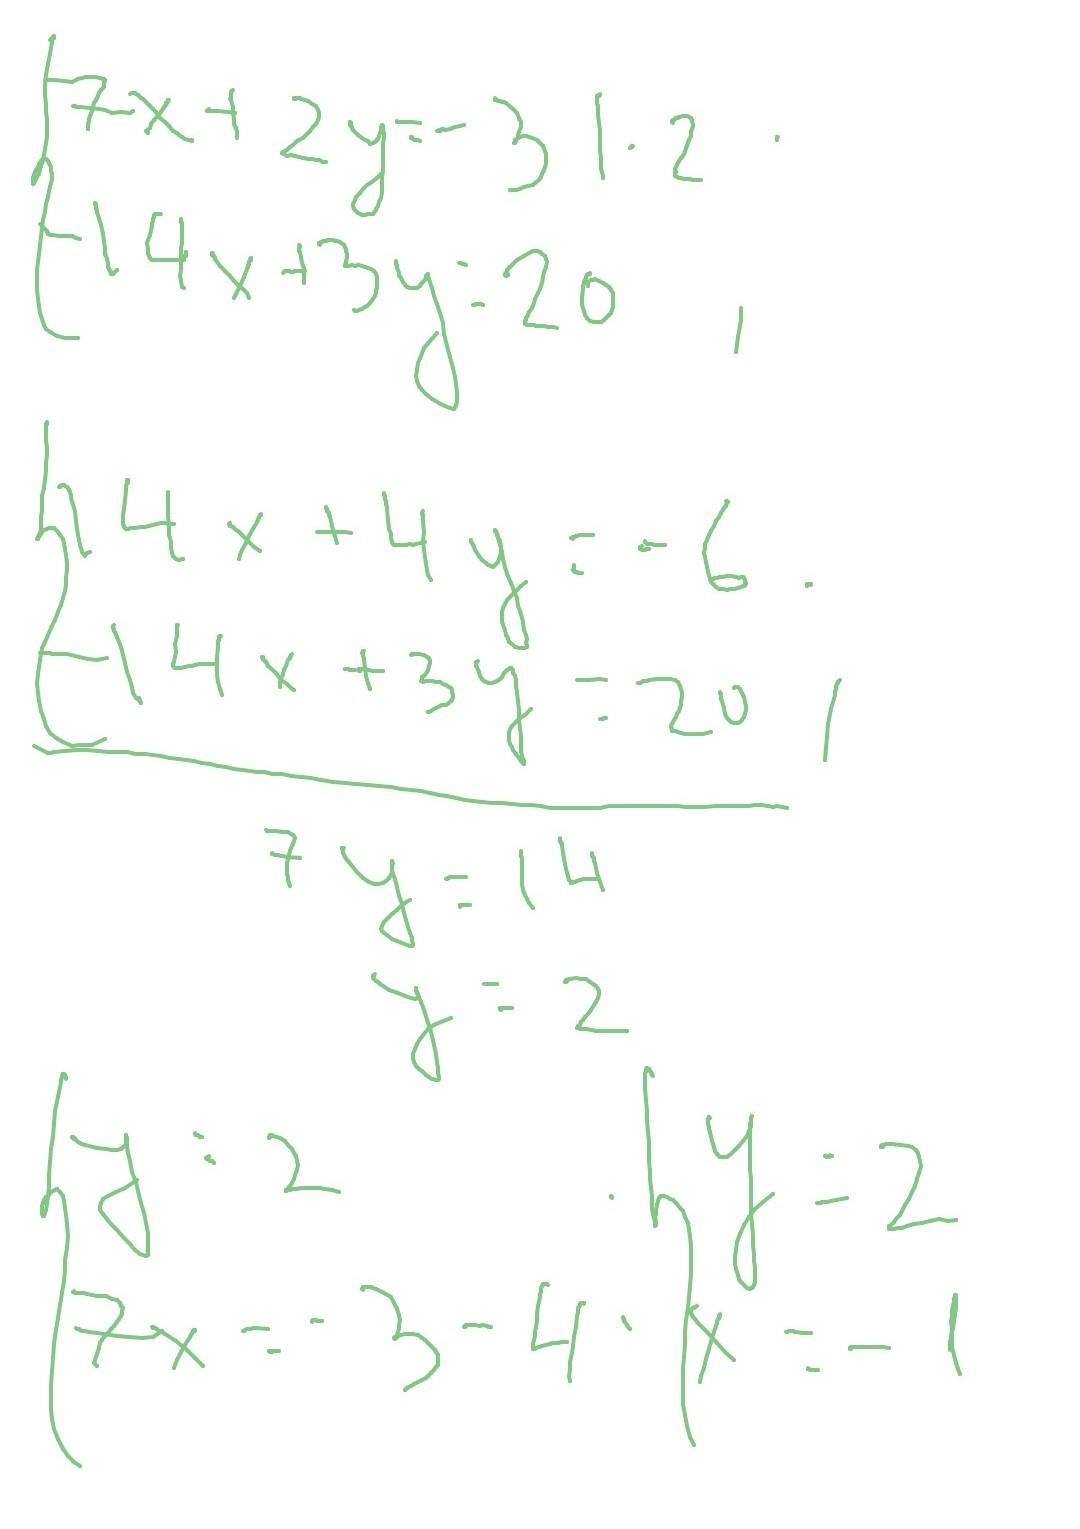 7x + 2y = - 3 | · 2
-14x + 3y = 20
14x + 4y = - 6
-14x + 3y = 20
7y = 14
y = 2
y = 2
7x = - 3 - 4
y = 2
x = - 1